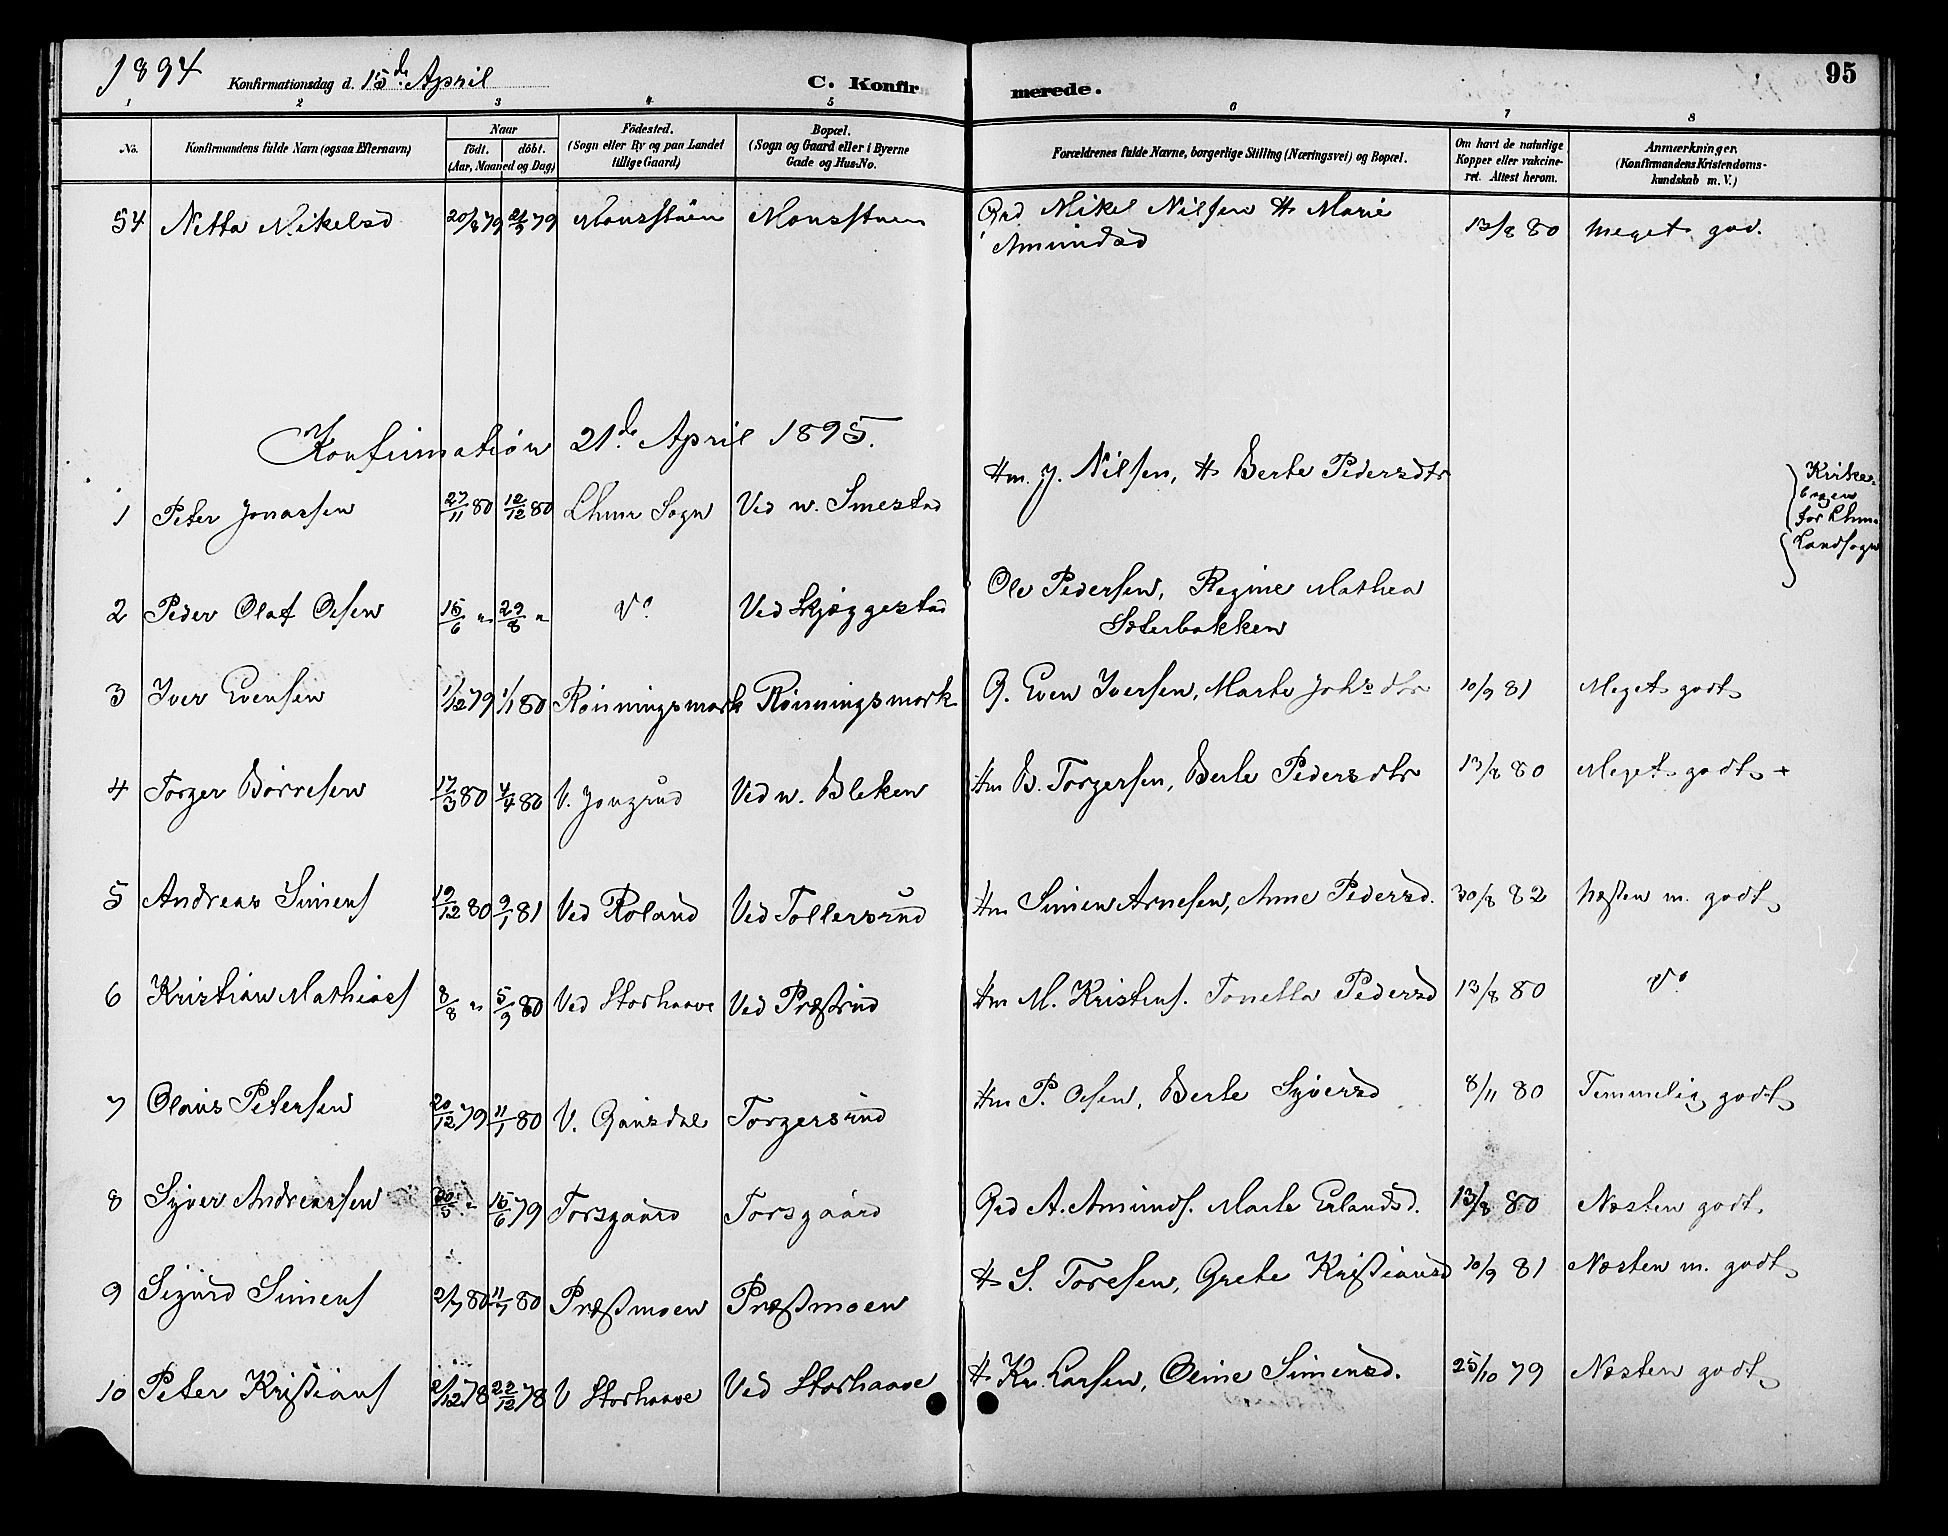 1894 Konfirmationsdag d. 15de April C. Konfirmerede. 95
1 2 3 4 5 6 7 8
No. Konfirmandens fulde Navn (ogsaa Efternavn) Naar født. døbt. (Aar, Maaned og Dag) Fødested. (Sogn eller By og paa Landet tillige Gaard) Bopæl. (Sogn og Gaard eller i Byerne Gade og Hus-No. Forældrenes fulde Navne, borgerlige Stilling (Næringsvei) og Bopæl. Om havt de naturlige Kopper eller vakcineret. Attest herom. Anmærkninger. (Konfirmandens Kristendomskundskab m. V.)
54 Netta Mikelsd 20/8 79 21/9 79 Monsstuen Monsstuen Grd Mikel Nilsen H Marie
Amundsd 13/8 80 Meget god.
Konfirmation 21de April 1895.
1 Peter Jonassen 27/11 80 12/12 80 Lhmr Sogn Ved n. Smestad Hm. J. Nilsen, H Berte Pedersdtr
Kirke-
bogen
for Lhmr
Landsogn
2 Peder Olaf Olsen 15/6 " 29/8 " Do Ved Skjæggestad Ole Pedersen, Regine Mathea
Sæterbakken
3 Iver Evensen 1/12 79 1/1 80 Rønningsmork Rønningsmork G. Even Iversen, Marte Johsdtr 10/9 81 Meget godt
4 Torger Børresen 17/3 80 4/4 80 V. Jongrud Ved n. Bleken Hm B. Torgersen, Berte Pedersdtr 13/8 80 Meget godt +
5 Andreas Simens 19/12 80 9/1 81 Ved Roland Ved Tollersrud Hm Simen Arnesen, Anne Pedersd. 30/8 82 Næsten m. godt
6 Kristian Mathias 8/8 " 5/9 80 Ved Storhaave Ved Præstrud Hm M. Kristens. Tonetta Pedersd 13/8 80 Do
7 Olaus Petersen 20/12 79 11/1 80 V. Gausdal Torgersrud Hm P. Olsen, Berte Syversd 8/11 80 Temmelig godt
8 Syver Andreassen 20/5 " 15/6 79 Torsgaard Torsgaard Grd A. Amunds. Marte Erlandsd. 13/8 80 Næsten godt.
9 Sigurd Simens 2/7 80 11/7 80 Præstmoen Præstmoen H S. Toresen, Grete Kristiansd 10/9 81 Næsten m. godt
10 Peter Kristians 2/12 78 22/12 78 V Storhaave Ved Storhaave H Kr. Larsen, Oline Simensd. 25/10 79 Næsten godt